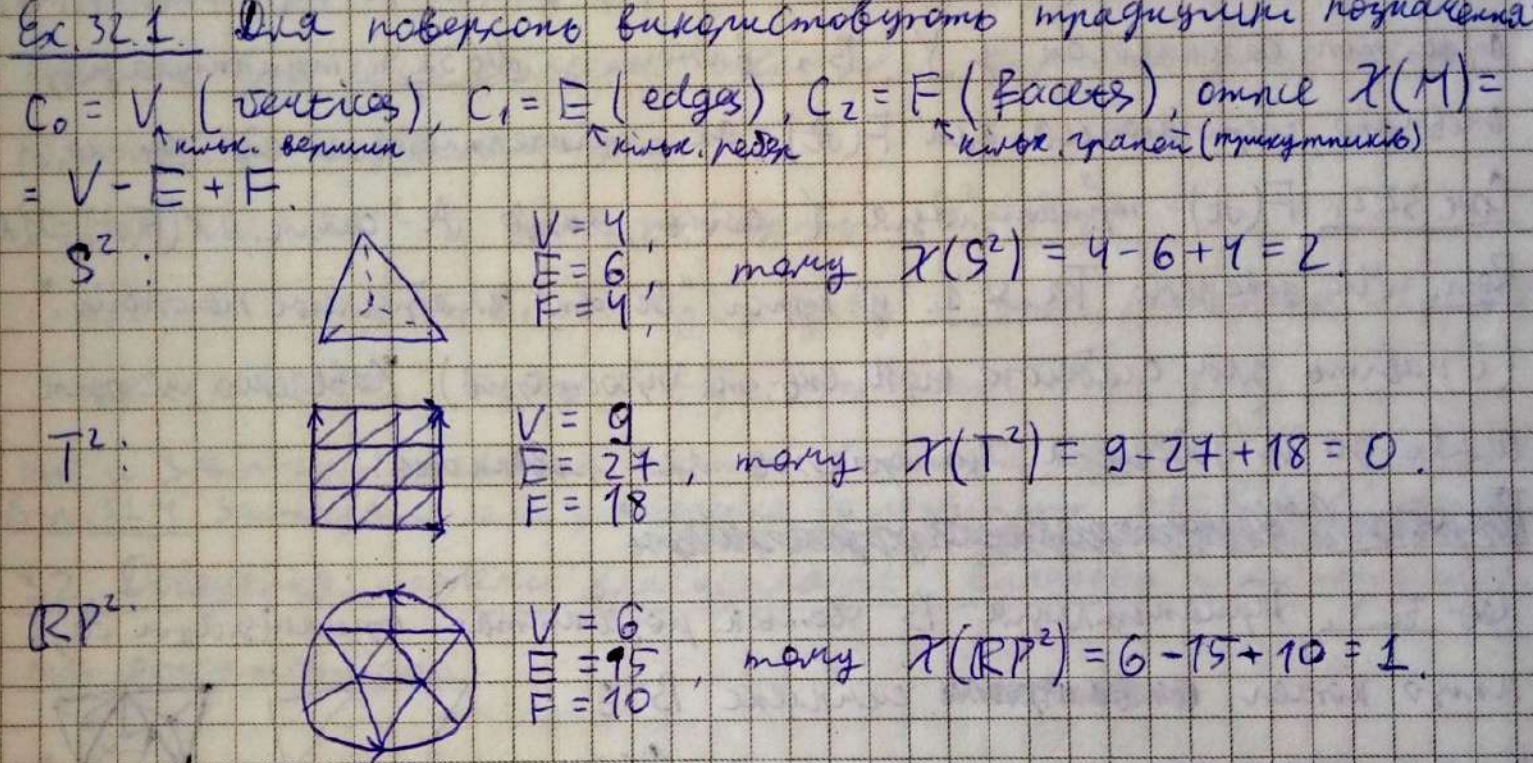 Ex. 32.1. Для поверхонь використовують традиційні позначення
C₀ = V (vertices), C₁ = E (edges), C₂ = F (facets), отже χ(M) =
↖кільк. вершин ↖кільк. ребер ↖кільк. граней (трикутників)
= V - E + F.
S²: V = 4, E = 6, F = 4, тому χ(S²) = 4 - 6 + 4 = 2.
T²: V = 9 E = 27 F = 18, тому χ(T²) = 9 - 27 + 18 = 0.
RP²: V = 6 E = 15 F = 10, тому χ(RP²) = 6 - 15 + 10 = 1.